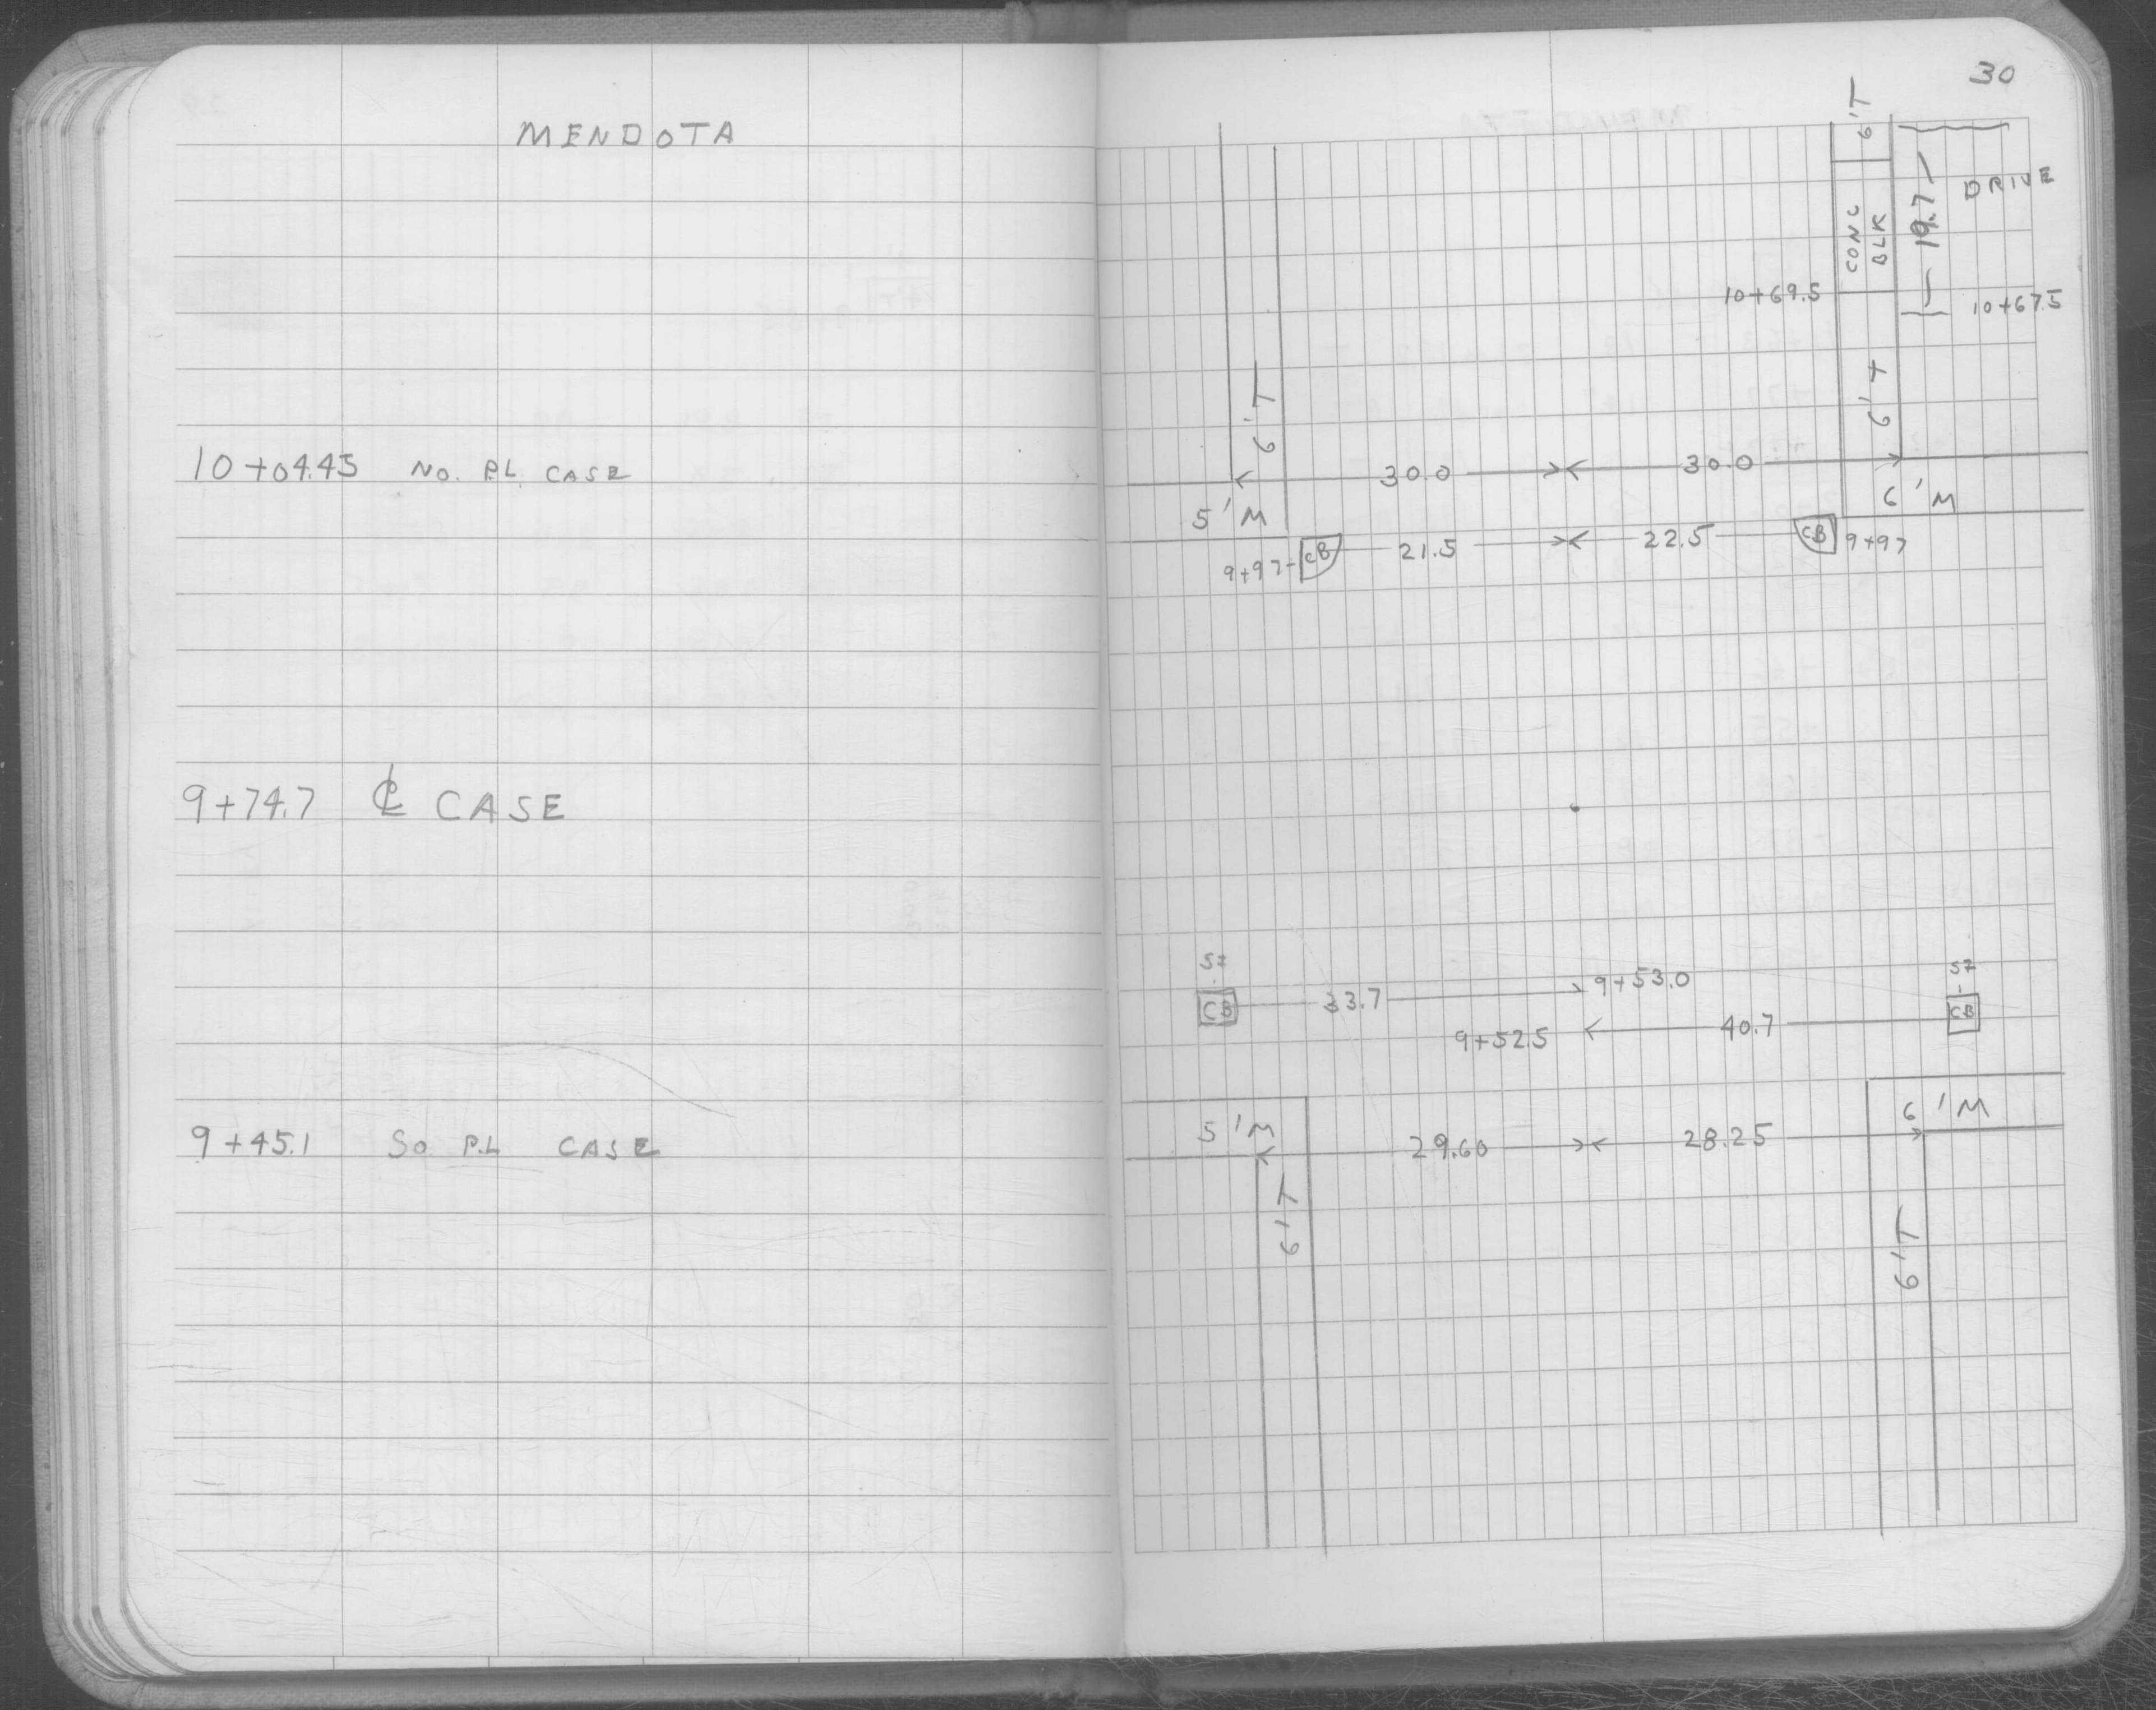 MENDOTA
10+04.45 No. P.L. CASE
9+74.7 ℄ CASE
9+45.1 So. P.L CASE
30
6'T
DRIVE
CONC
BLK
19.7
10+69.5
10+67.5
6'T
6'T
30.0
30.0
5'M
6'M
9+97
CB
21.5
22.5
CB
9+97
CB
33.7
9+53.0
9+52.5
40.7
CB
5'M
29.60
28.25
6'M
6'T
6'T